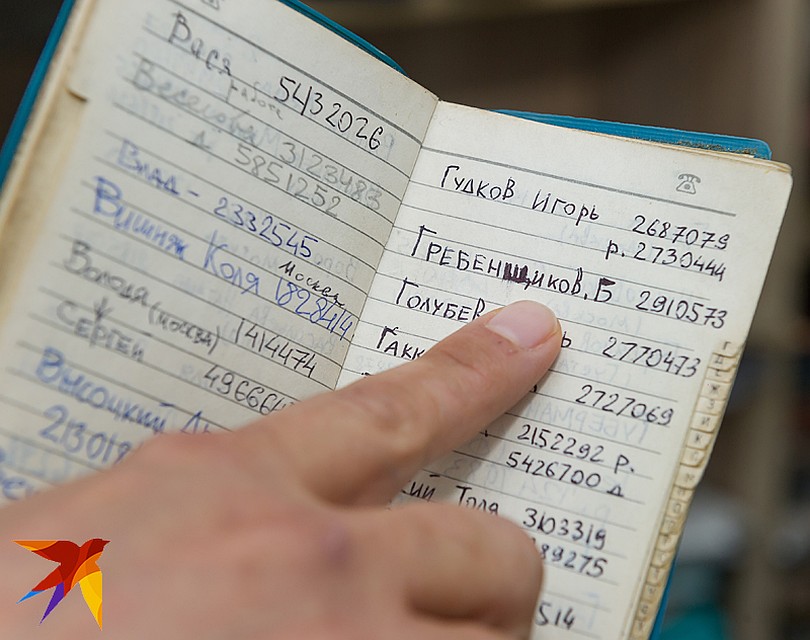 Вася 5432026
работа
Веселова 3123483
д 5851252
Влад - 2332545
Вишняк Коля
Москва
1828414
Володя (Москва) 1414474
Сергей
Высоцкий
Гудков Игорь 2687079
р. 2730444
Гребенщиков. Б 2910573
Голубев ь 2770473
Гакк
2727069
2152292 р.
5426700 д
ский Толя 3103319
89275
514
Г
Д
Е
Ж
З
И
К